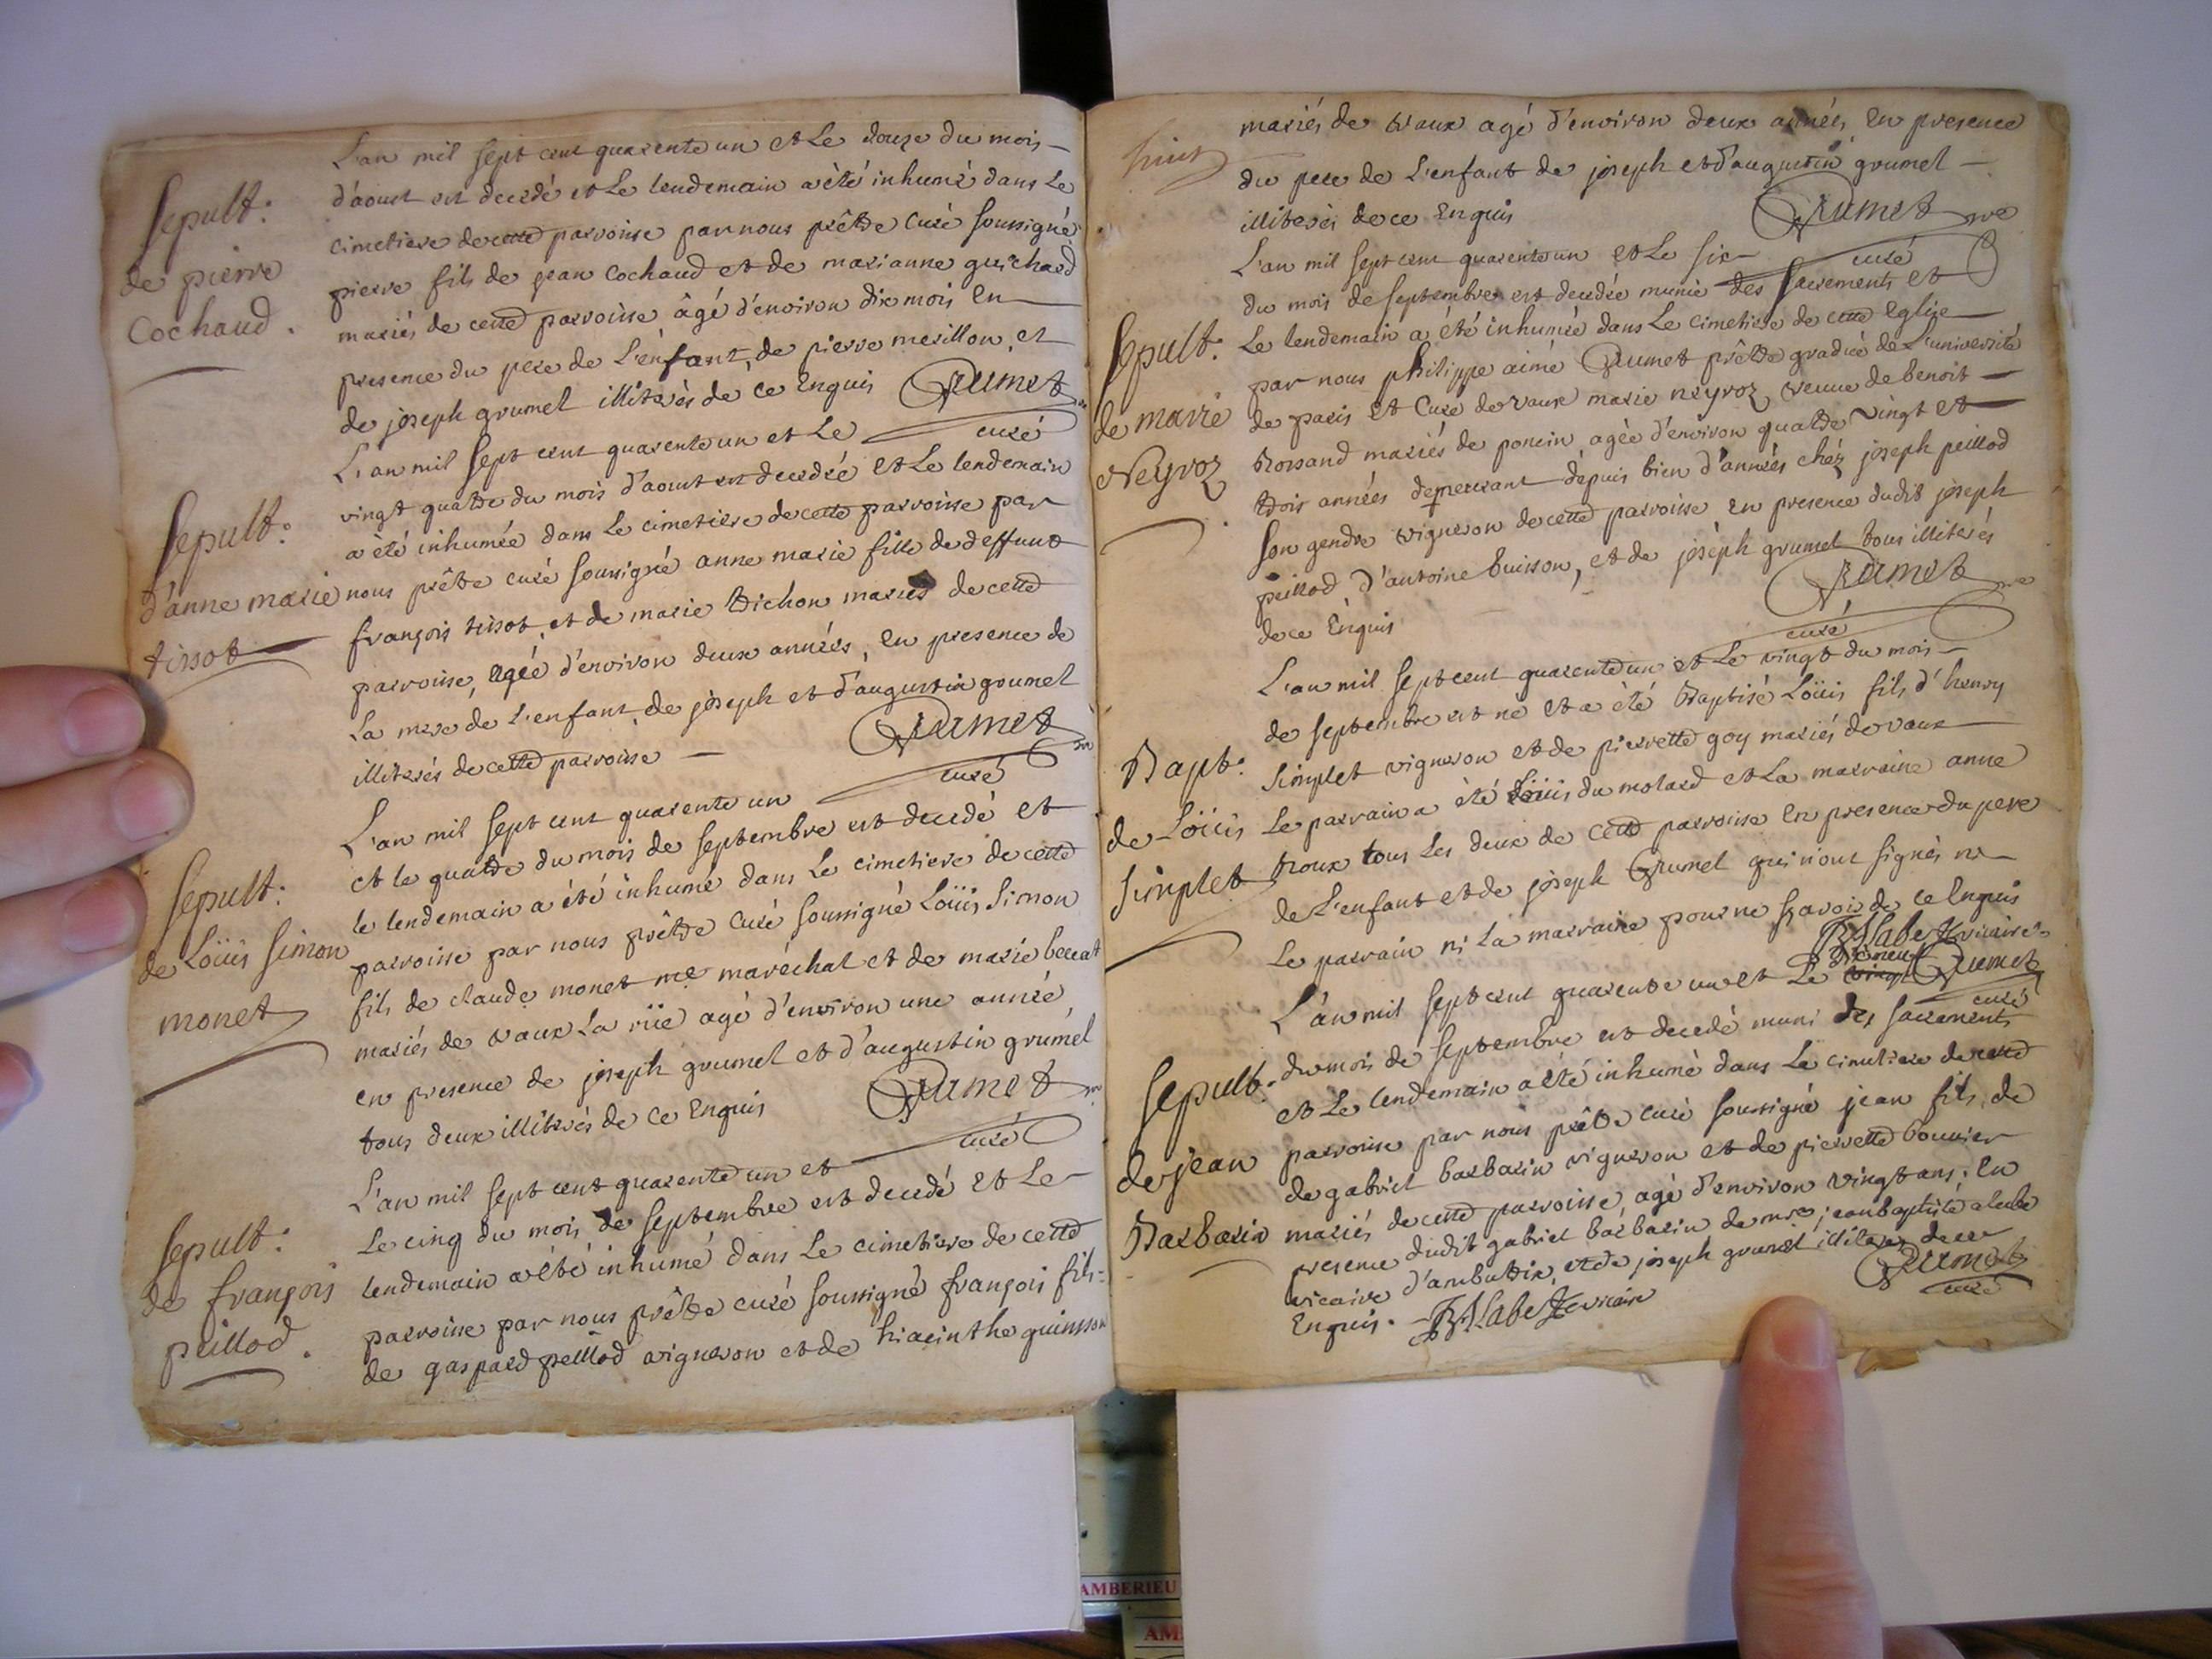 Sepult:
de pierre
Cochaud.
L'an mil sept cent quarente un et Le douze du mois
d'aoust est decedé et Le lendemain a été inhumé dans Le
cimetiere de cette parroisse par nous prêtre Curé soussigné
pierre fils de jean Cochaud et de marianne guichard
mariés de cette parroisse âgé d'environ dix mois En
presence du pere de L'enfant, de pierre merillon, et
de joseph grumel illiterés de ce Enquis Grumet
curé
Sepult:
d'anne marie
tissot
L'an mil sept cent quarente un et Le
vingt quatre du mois d'aoust est decedée et Le lendemain
a été inhumée dans Le cimetiere de cette parroisse par
nous prêtre curé soussigné anne marie fille de deffunt
françois tissot, et de marie trichon mariés de cette
parroisse, agée d'environ deux années, En presence de
La mere de L'enfant, de joseph et d'augustin grumel
illiterés de cette parroisse Grumet
curé
Sepult:
de Loüis Simon
monet
L'an mil sept cent quarente un
et le quatre du mois de septembre est decedé et
le lendemain a été inhumé dans Le cimetiere de cette
parroisse par nous prêtre Curé soussigné Loüis Simon
fils de claude monet me maréchal et de marie beccat
mariés de vaux La rüe agé d'environ une année
en presence de joseph grumel et d'augustin grumel
tous deux illiterés de ce Enquis Grumet
curé
Sepult:
de françois
peillod.
L'an mil sept cent quarente un et
Le cinq du mois de septembre est decedé et Le
lendemain a été inhumé dans Le cimetiere de cette
parroisse par nous prêtre curé soussigné françois fils
de gaspard peillod vigneron et de hiacinthe guinsson
mariés de vaux agé d'environ deux années, En presence
du pere de L'enfant de joseph et d'augustin grumel
illiterés de ce Enquis Grumet
curé
Sepult:
de marie
Neyroz
L'an mil sept cent quarente un et Le six
du mois de septembre est decedée munie des sacrements et
Le lendemain a été inhumée dans Le cimetiere de cette Eglise
par nous philippe aimé Grumet prêtre gradué de L'université
de paris et Curé de vaux marie neyroz veuve de benoit
Rossand mariés de poncin agée d'environ quatre vingt et
trois années demeurant depuis bien d'années chéz joseph peillod
son gendre vigneron de cette parroisse en presence dudit joseph
peillod, d'antoine buisson, et de joseph grumel tous illiterés
de ce Enquis Grumet
curé
Bapt:
de Loüis
Simplet
L'an mil sept cent quarente un et Le vingt du mois
de septembre est né et a été Baptisé Loüis fils d'henry
Simplet vigneron et de pierrette goy mariés de vaux
Le parrain a été Loüis du molard et La marraine anne
Roux tous Les deux de cette parroisse En presence du pere
de L'enfant et de joseph Grumel qui n'ont signés ni
Le parrain ni La marraine pour ne sçavoir de ce Enquis
vicaire
Grumet
curé
Sepult:
de jean
Barbarin
L'an mil sept cent quarente un et Le vingt
du mois de septembre est decedé muni des sacrements
et Le lendemain a été inhumé dans Le cimetiere de cette
parroisse par nous prêtre curé soussigné jean fils de
de gabriel barbarin vigneron et de pierrette bouvier
mariés de cette parroisse, agé d'environ vingt ans; En
presence dudit gabriel barbarin de mre jean baptiste
vicaire d'ambutrix, et de joseph grumel illiterés de ce
Enquis. vicaire Grumet
curé
AMBERIEU
AM